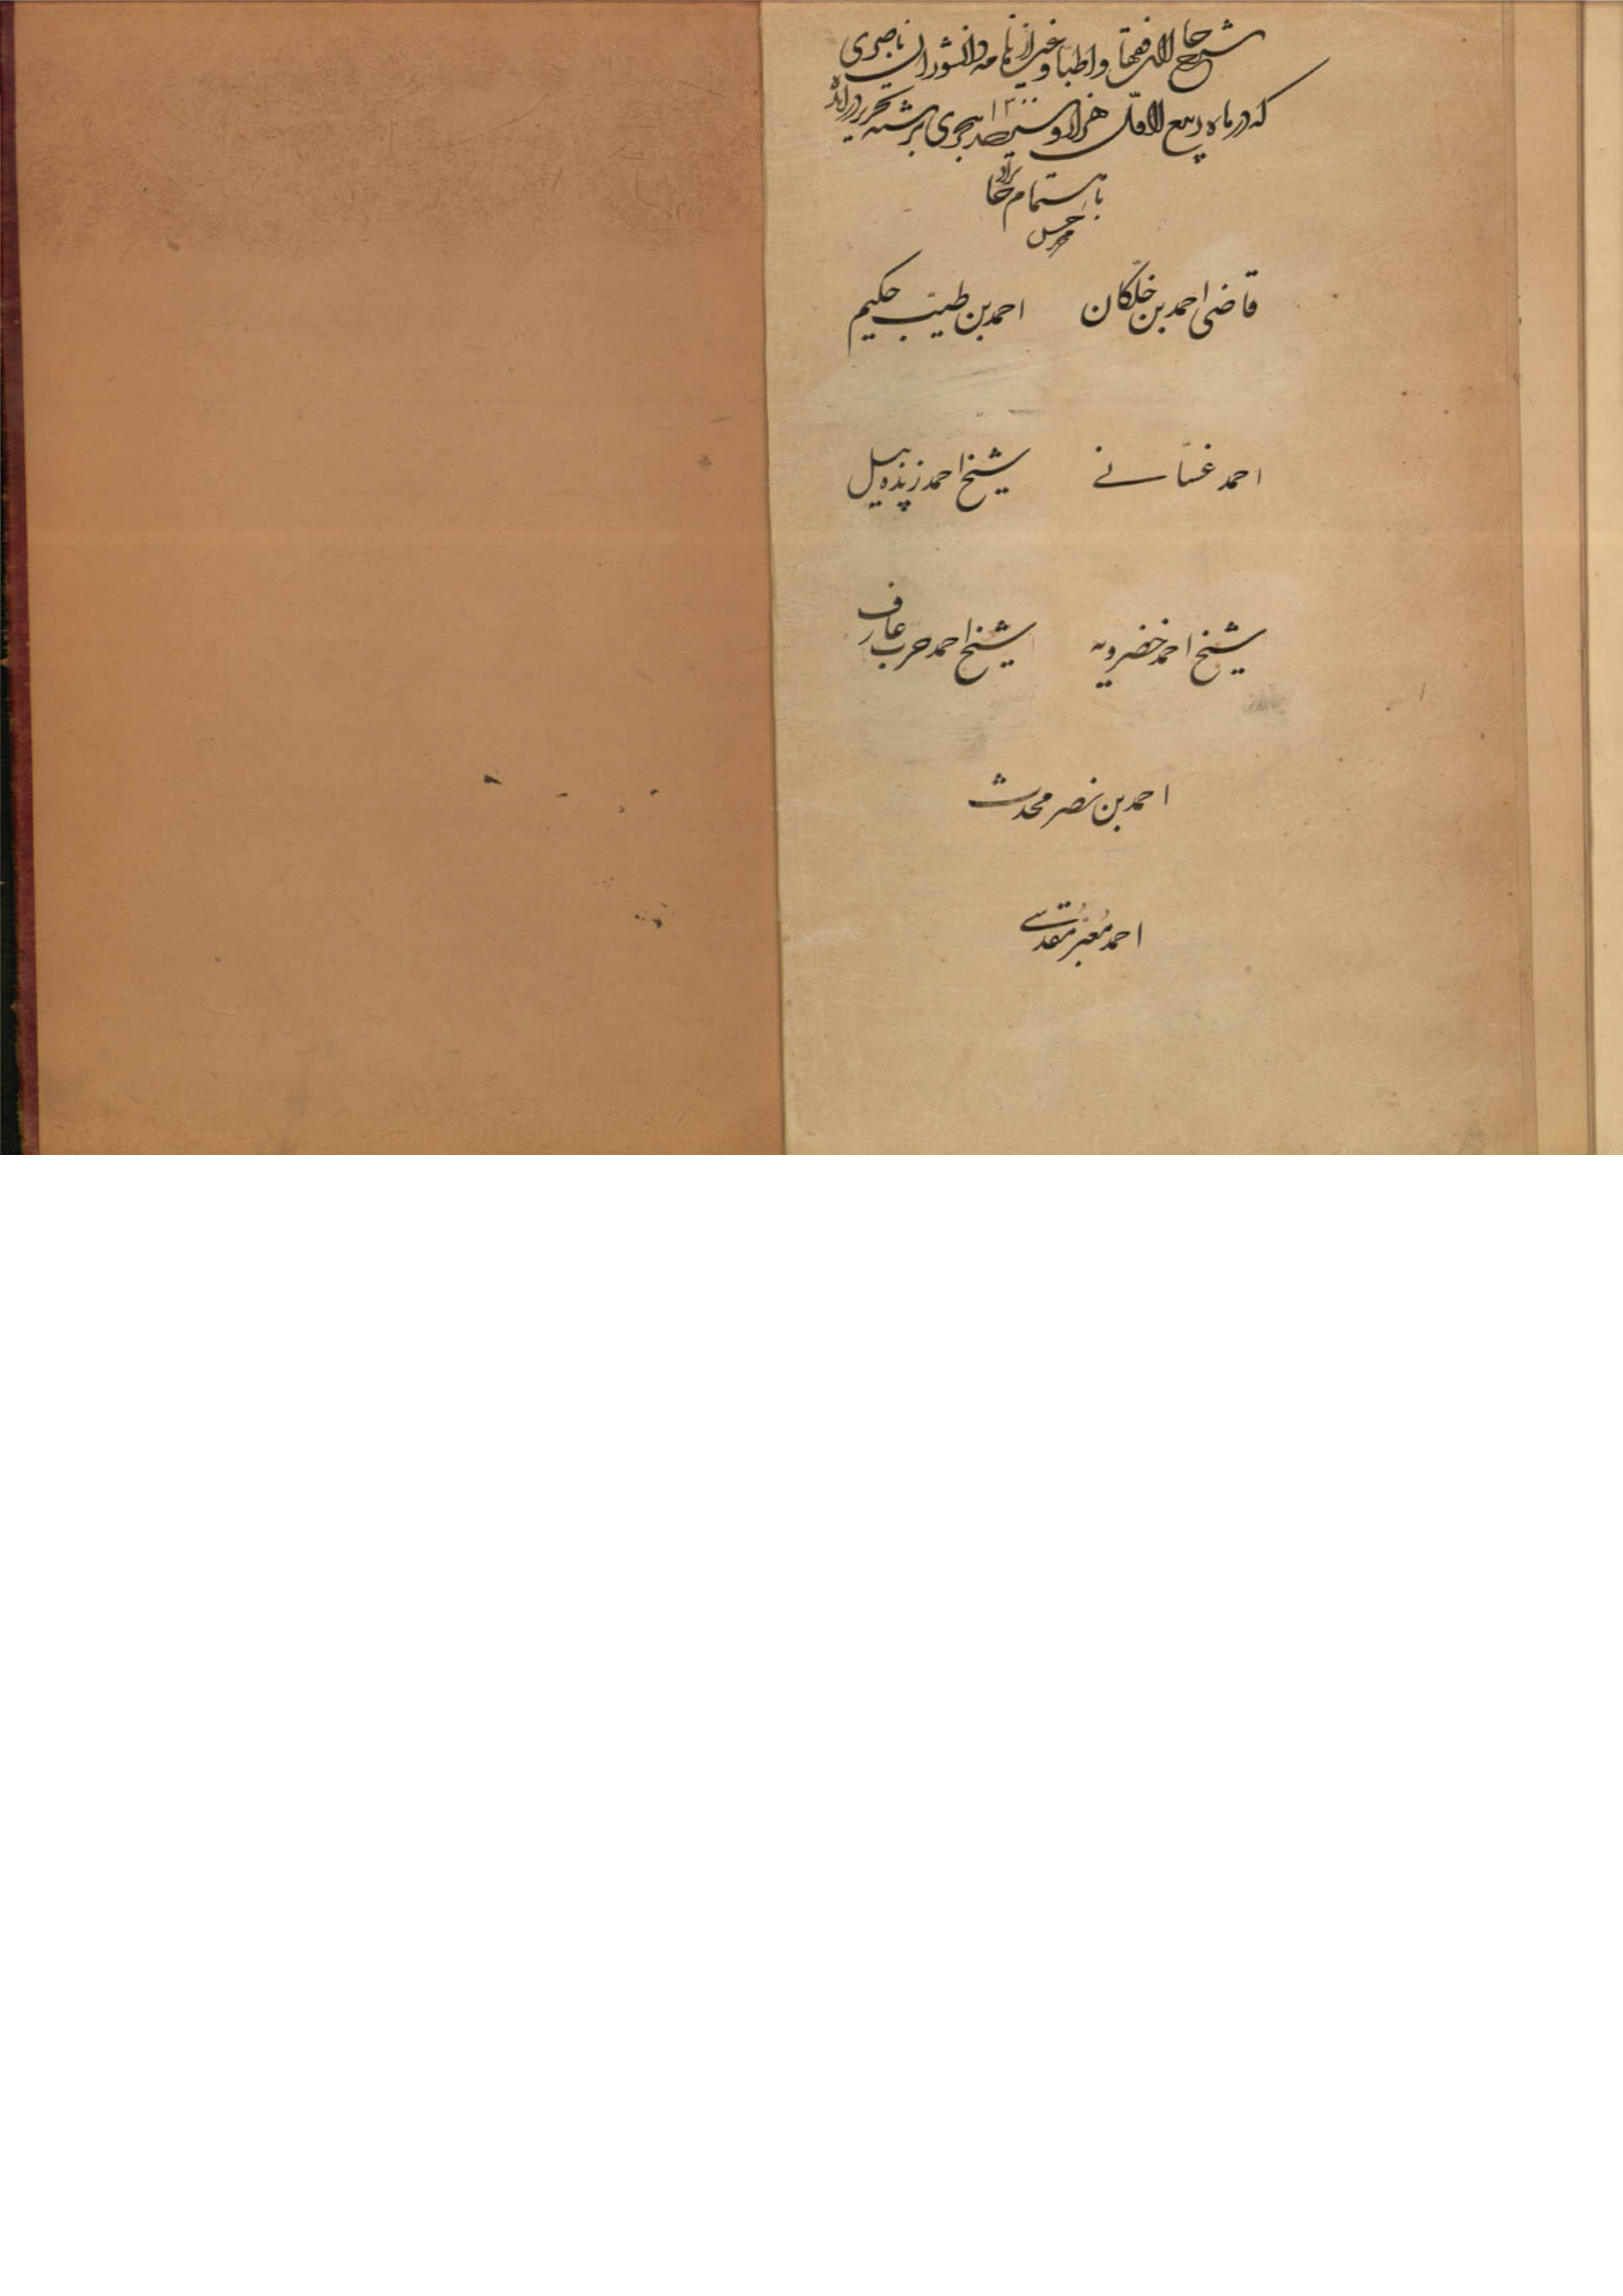 شرح حالات فقها و اطبا و غیره از نامه دانشوران ناصری
که در ماه ربیع الاول هزار و سیصد ۱۳۰۰ هجری برشته تحریر درآمده
باهتمام
قاضی احمد بن خلّکان احمد بن طیّب حکیم
احمد غسّانی شیخ احمد زنده پیل
شیخ احمد خضرویه شیخ احمد حرب عارف
احمد بن نصر محدث
احمد مُعبّر مُقدسی